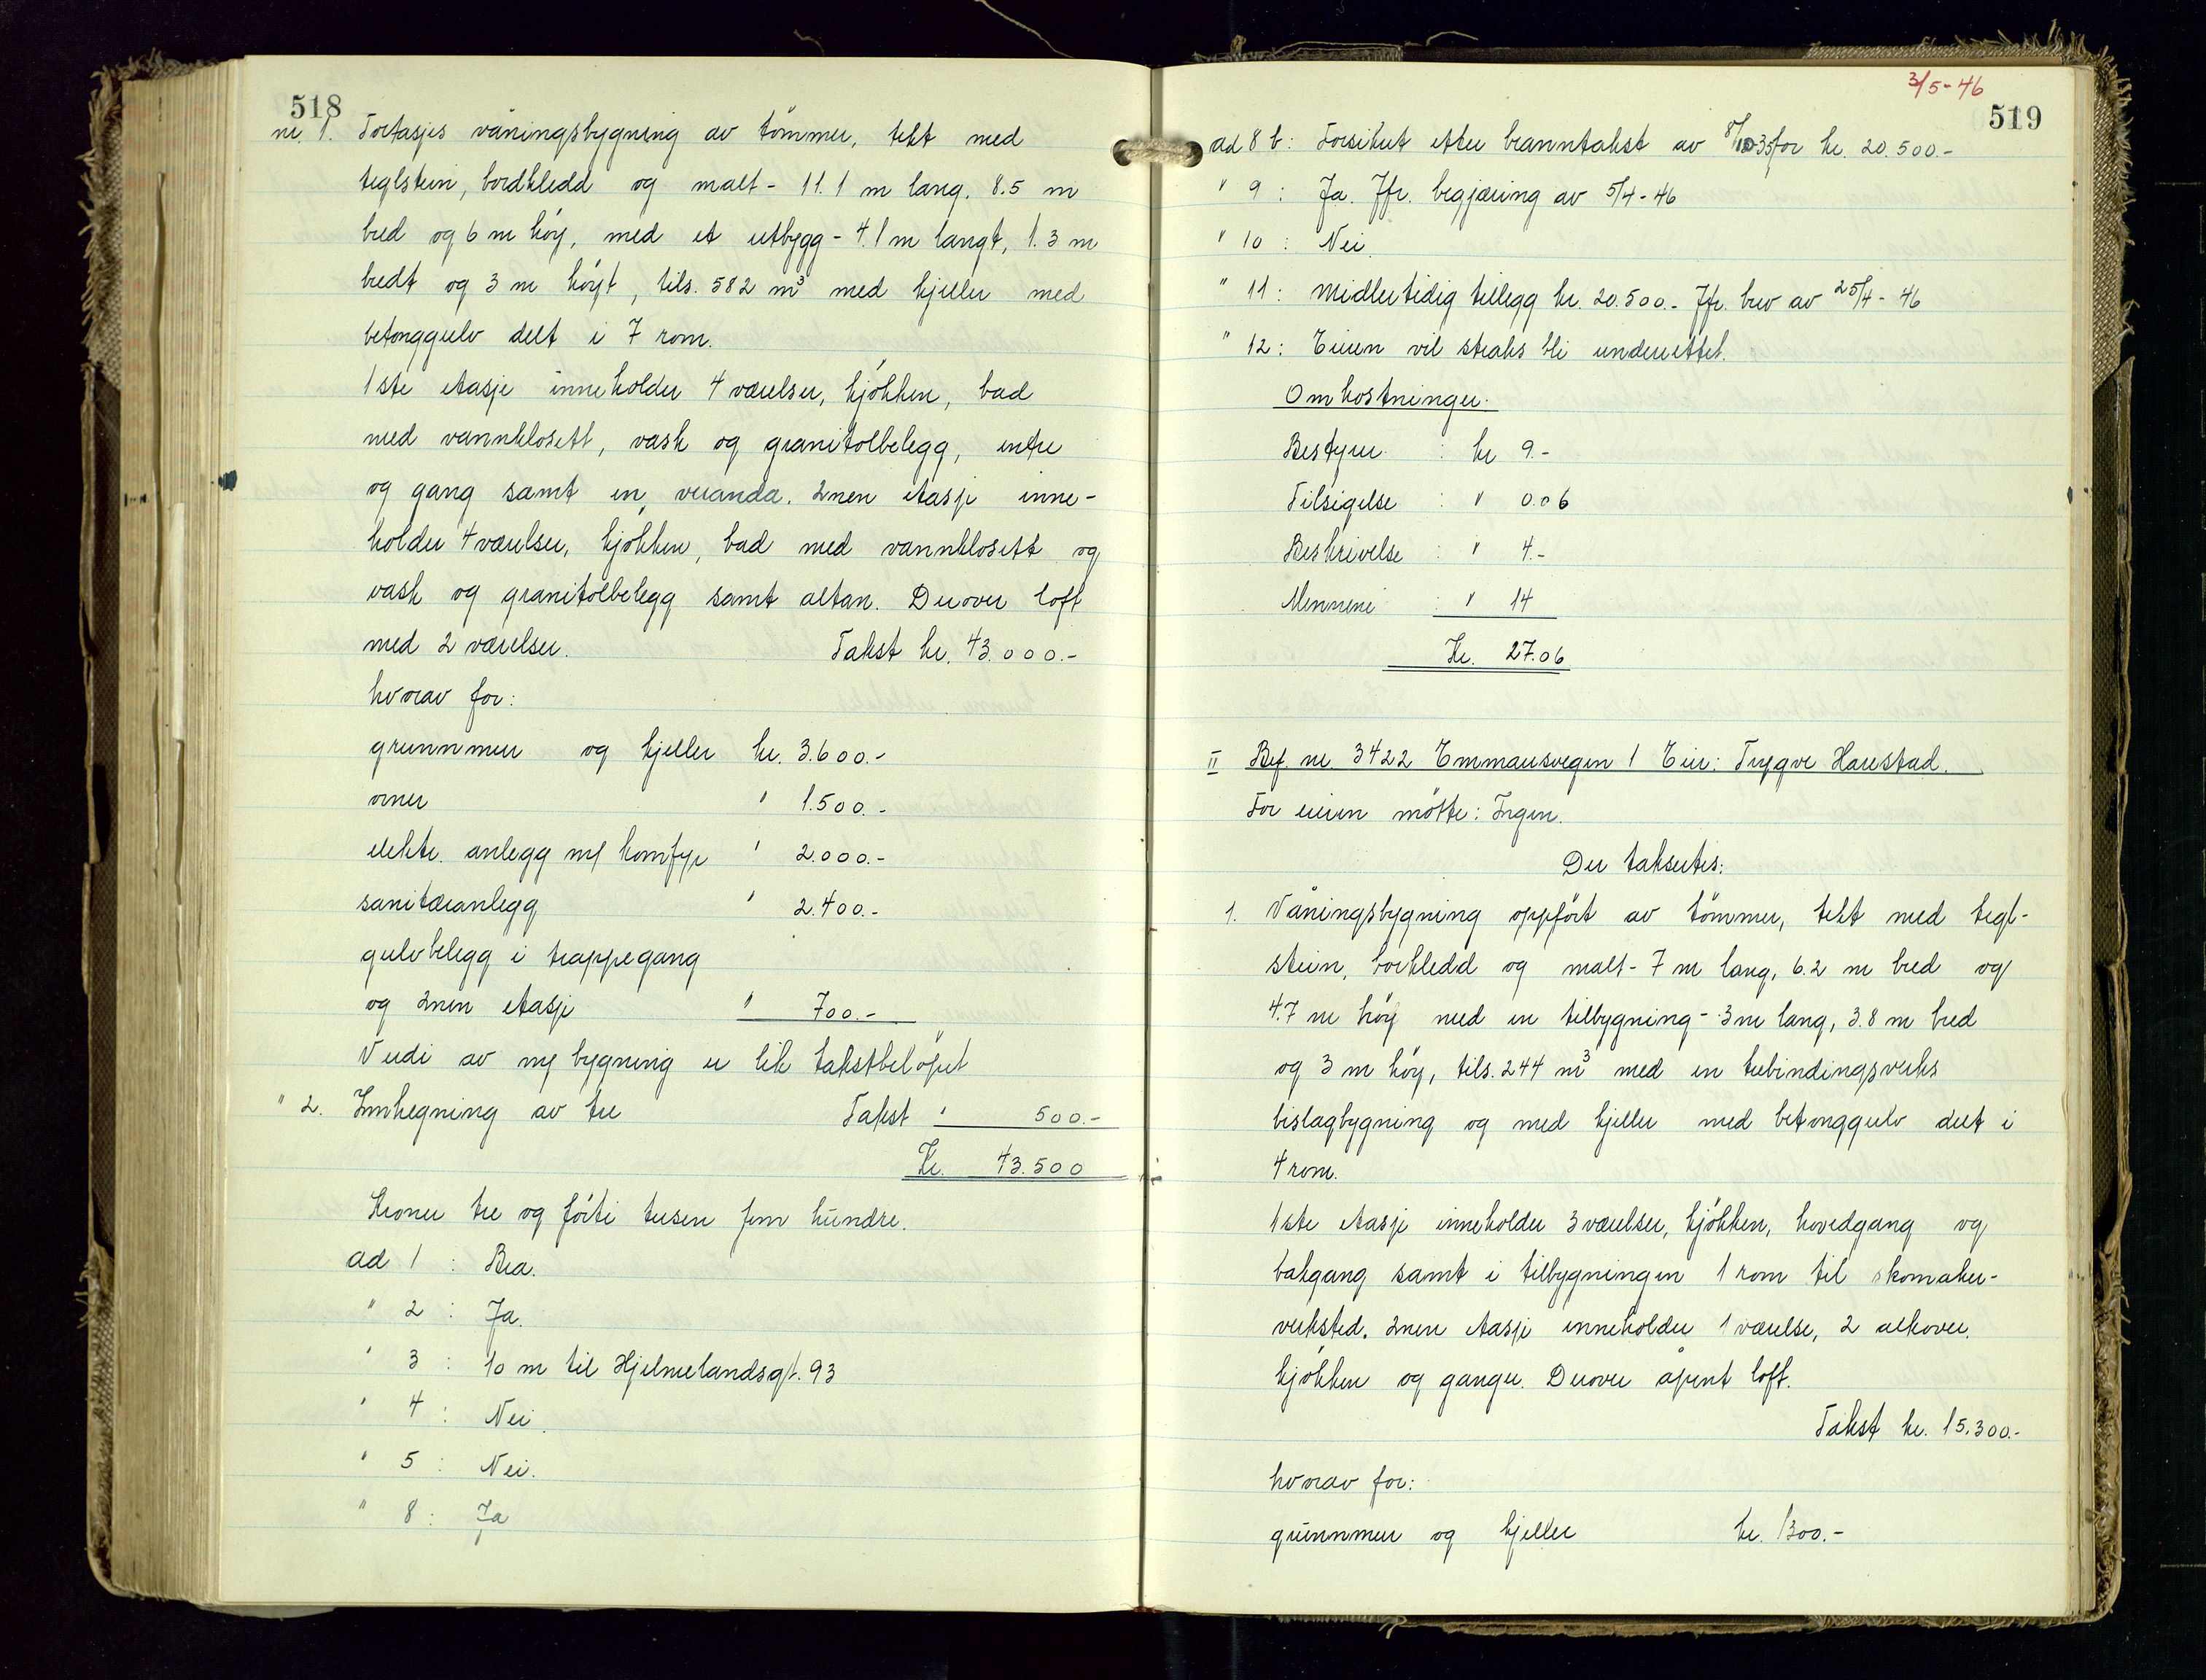 518
nr. 1. Toetasjes våningsbygning av tömmer, tekt med
teglstein, bordkledd og malt - 11.1 m lang. 8.5 m
bred og 6 m höy, med et utbygg - 4.1 m langt, 1.3 m
bredt og 3 m höyt, tils. 582 m³ med kjeller med
betonggulv delt i 7 rom.
1ste etasje inneholder 4 værelser, kjökken, bad
med vannklosett, vask og granitolbelegg, entre
og gang samt en veranda. 2nen etasje inne-
holder 4 værelser, kjökken, bad med vannklosett og
vask og granitolbelegg samt altan. Derover loft
med 2 værelser. Takst kr. 43.000.-
hvorav for:
grunnmur og kjeller kr. 3.600.-
ovner " 1.500.-
elektr. anlegg m/ komfyr " 2.000.-
sanitæranlegg " 2.400.-
gulvbelegg i trappegang
og 2nen etasje " 700.-
Verdi av ny bygning er lik takstbelöpet
" 2. Innhegning av tre Takst " 500.-
Kr. 43.500
Kroner tre og förti tusen fem hundre.
ad 1 : Bra.
" 2 : Ja.
" 3 : 10 m til Hjelmelandsgt. 93
" 4 : Nei.
" 5 : Nei.
" 8 : Ja
3/5-46
519
ad 8 b: Forsikret etter branntakst av 8/10-35 for kr. 20.500.-
" 9 : Ja. Jfr. begjæring av 5/4-46
" 10 : Nei.
" 11 : Midlertidig tillegg kr. 20.500.- Jfr. brev av 25/4-46
" 12 : Eieren vil straks bli underrettet.
Omkostninger.
Bestyrer : kr 9.-
Tilsigelse : " 0.06
Beskrivelse : " 4.-
Mennene : " 14
Kr. 27.06
II Bef. nr. 3422 Emmausvegen 1 Eier: Trygve Harestad.
For eieren mötte: Ingen.
Der taksertes:
1. Våningsbygning oppfört av tömmer, tekt med tegl-
stein, borkledd og malt - 7 m lang, 6.2 m bred og
4.7 m höy med en tilbygning - 3 m lang, 3.8 m bred
og 3 m höy, tils. 244 m³ med en trebindingsverks
bislagbygning og med kjeller med betonggulv delt i
4 rom.
1ste etasje inneholder 3 værelser, kjökken, hovedgang og
bakgang samt i tilbygningen 1 rom til skomaker-
verksted. 2nen etasje inneholder 1 værelse, 2 alkover.
kjökken og ganger. Derover åpent loft.
Takst kr. 15.300.-
hvorav for:
grunnmur og kjeller kr. 1300.-